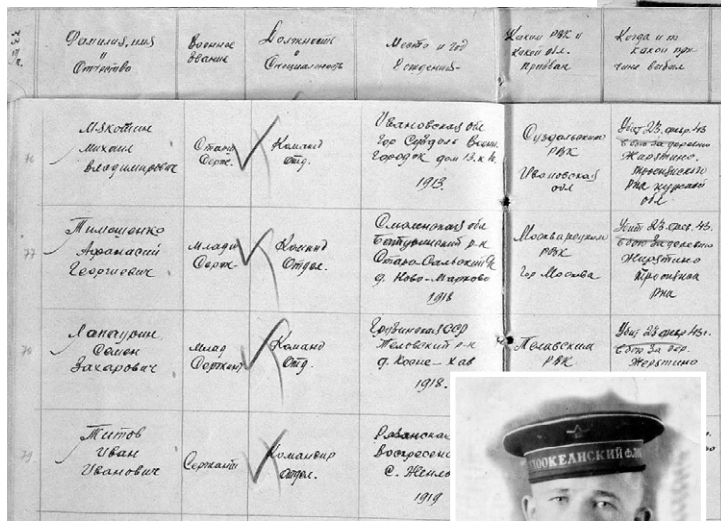 Фамилия, имя
и
Отчество
Военное
звание
Должность
и
Специальность
Место и год
рождения
Каким РВК и
какой обл.
призван
Когда и по
какой при-
чине выбыл
76
Мякотин
Михаил
Владимирович
Серж.
Команд
Отд.
Ивановская обл
дом 13
1913.
Суздальским
РВК
Ивановская
обл
Убит 23. февр 43
в бою за деревню
Жерятино
рна
обл
77
Тимошенко
Афанасий
Георгиевич
Младш
Серж.
Команд
Отдел.
Смоленская обл
Батуринский р-к
д. Ново-Марково
1918
Москварецким
РВК
Гор Москва
Убит 23. февр. 43.
в бою за деревню
Жерятино
рна
78
Семен
Захарович
Млад
Сержант
Команд
Отд.
Грузинская ССР
р-к
1918.
РВК
Убит 23 февр 43г.
в бою за дер.
Жерятино
79
Титов
Иван
Иванович
Сержант
Командир
Отдел.
Рязанская
Воскресен
1919
ТООКЕАНСКИЙ ФЛ